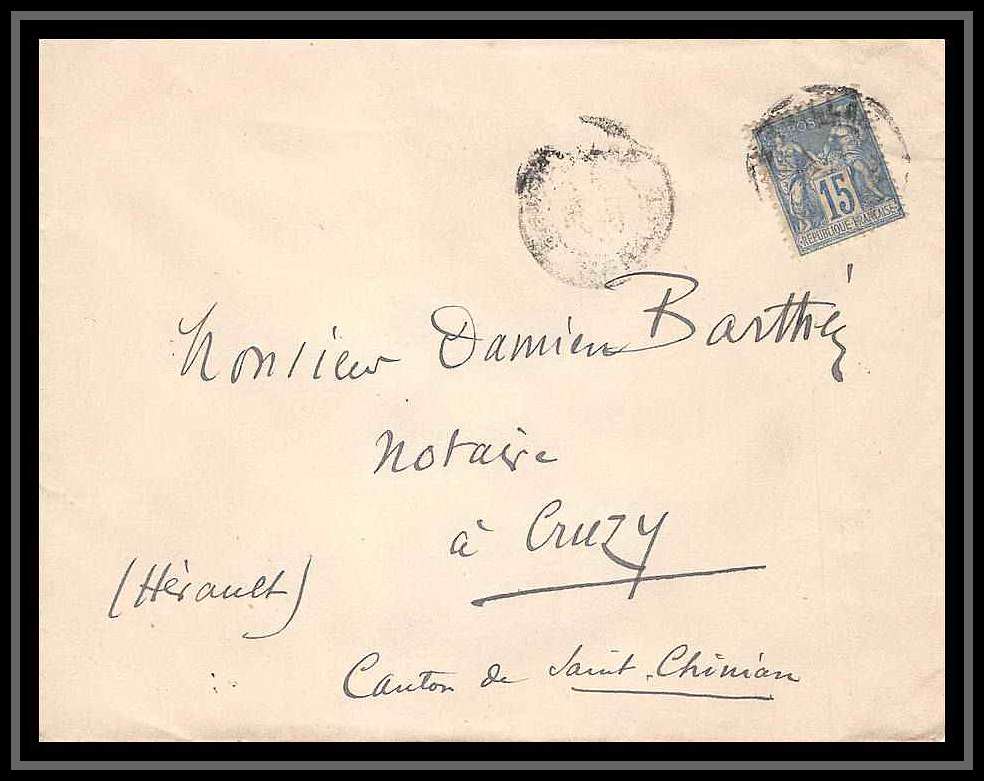 POSTES
15
REPUBLIQUE FRANCAISE
Monsieur Damien Barthéz
Notaire
à Cruzy
(Hérault)
Canton de Saint-Chinian